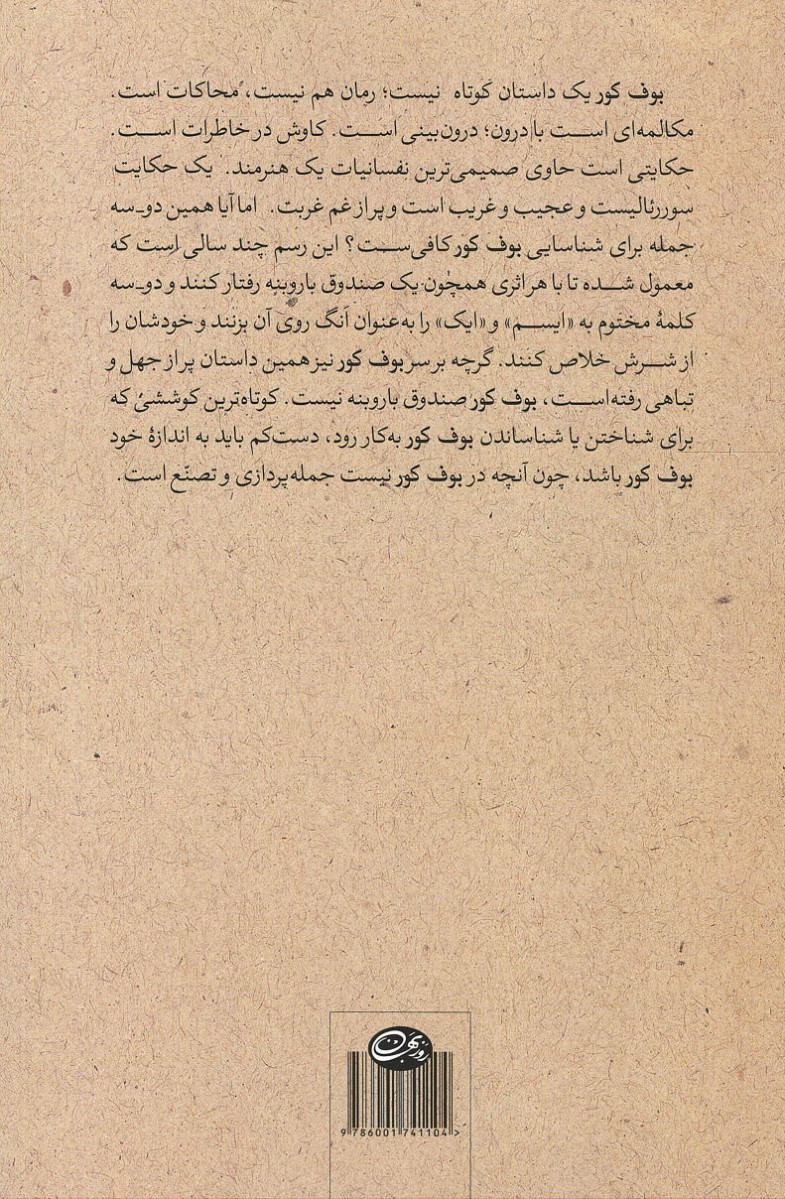 بوف کور یک داستان کوتاه نیست؛ رمان هم نیست، محاکات است.
مکالمه‌ای است با درون؛ درون‌بینی است. کاوش در خاطرات است.
حکایتی است حاوی صمیمی‌ترین نفسانیات یک هنرمند. یک حکایت
سوررئالیست و عجیب و غریب است و پر از غم غربت. اما آیا همین دو‌ـ‌سه
جمله برای شناسایی بوف کور کافی‌ست؟ این رسم چند سالی است که
معمول شده تا با هر اثری همچون یک صندوق باروبنه رفتار کنند و دو‌ـ‌سه
کلمهٔ مختوم به «ایسم» و «ایک» را به‌عنوان اَنگ روی آن بزنند و خودشان را
از شرش خلاص کنند. گرچه بر سر بوف کور نیز همین داستان پر از جهل و
تباهی رفته‌است، بوف کور صندوق باروبنه نیست. کوتاه‌ترین کوششی که
برای شناختن یا شناساندن بوف کور به‌کار رود، دست‌کم باید به اندازهٔ خود
بوف کور باشد، چون آنچه در بوف کور نیست جمله‌پردازی و تصنّع است.
روزبهان
9 786001 741104 >